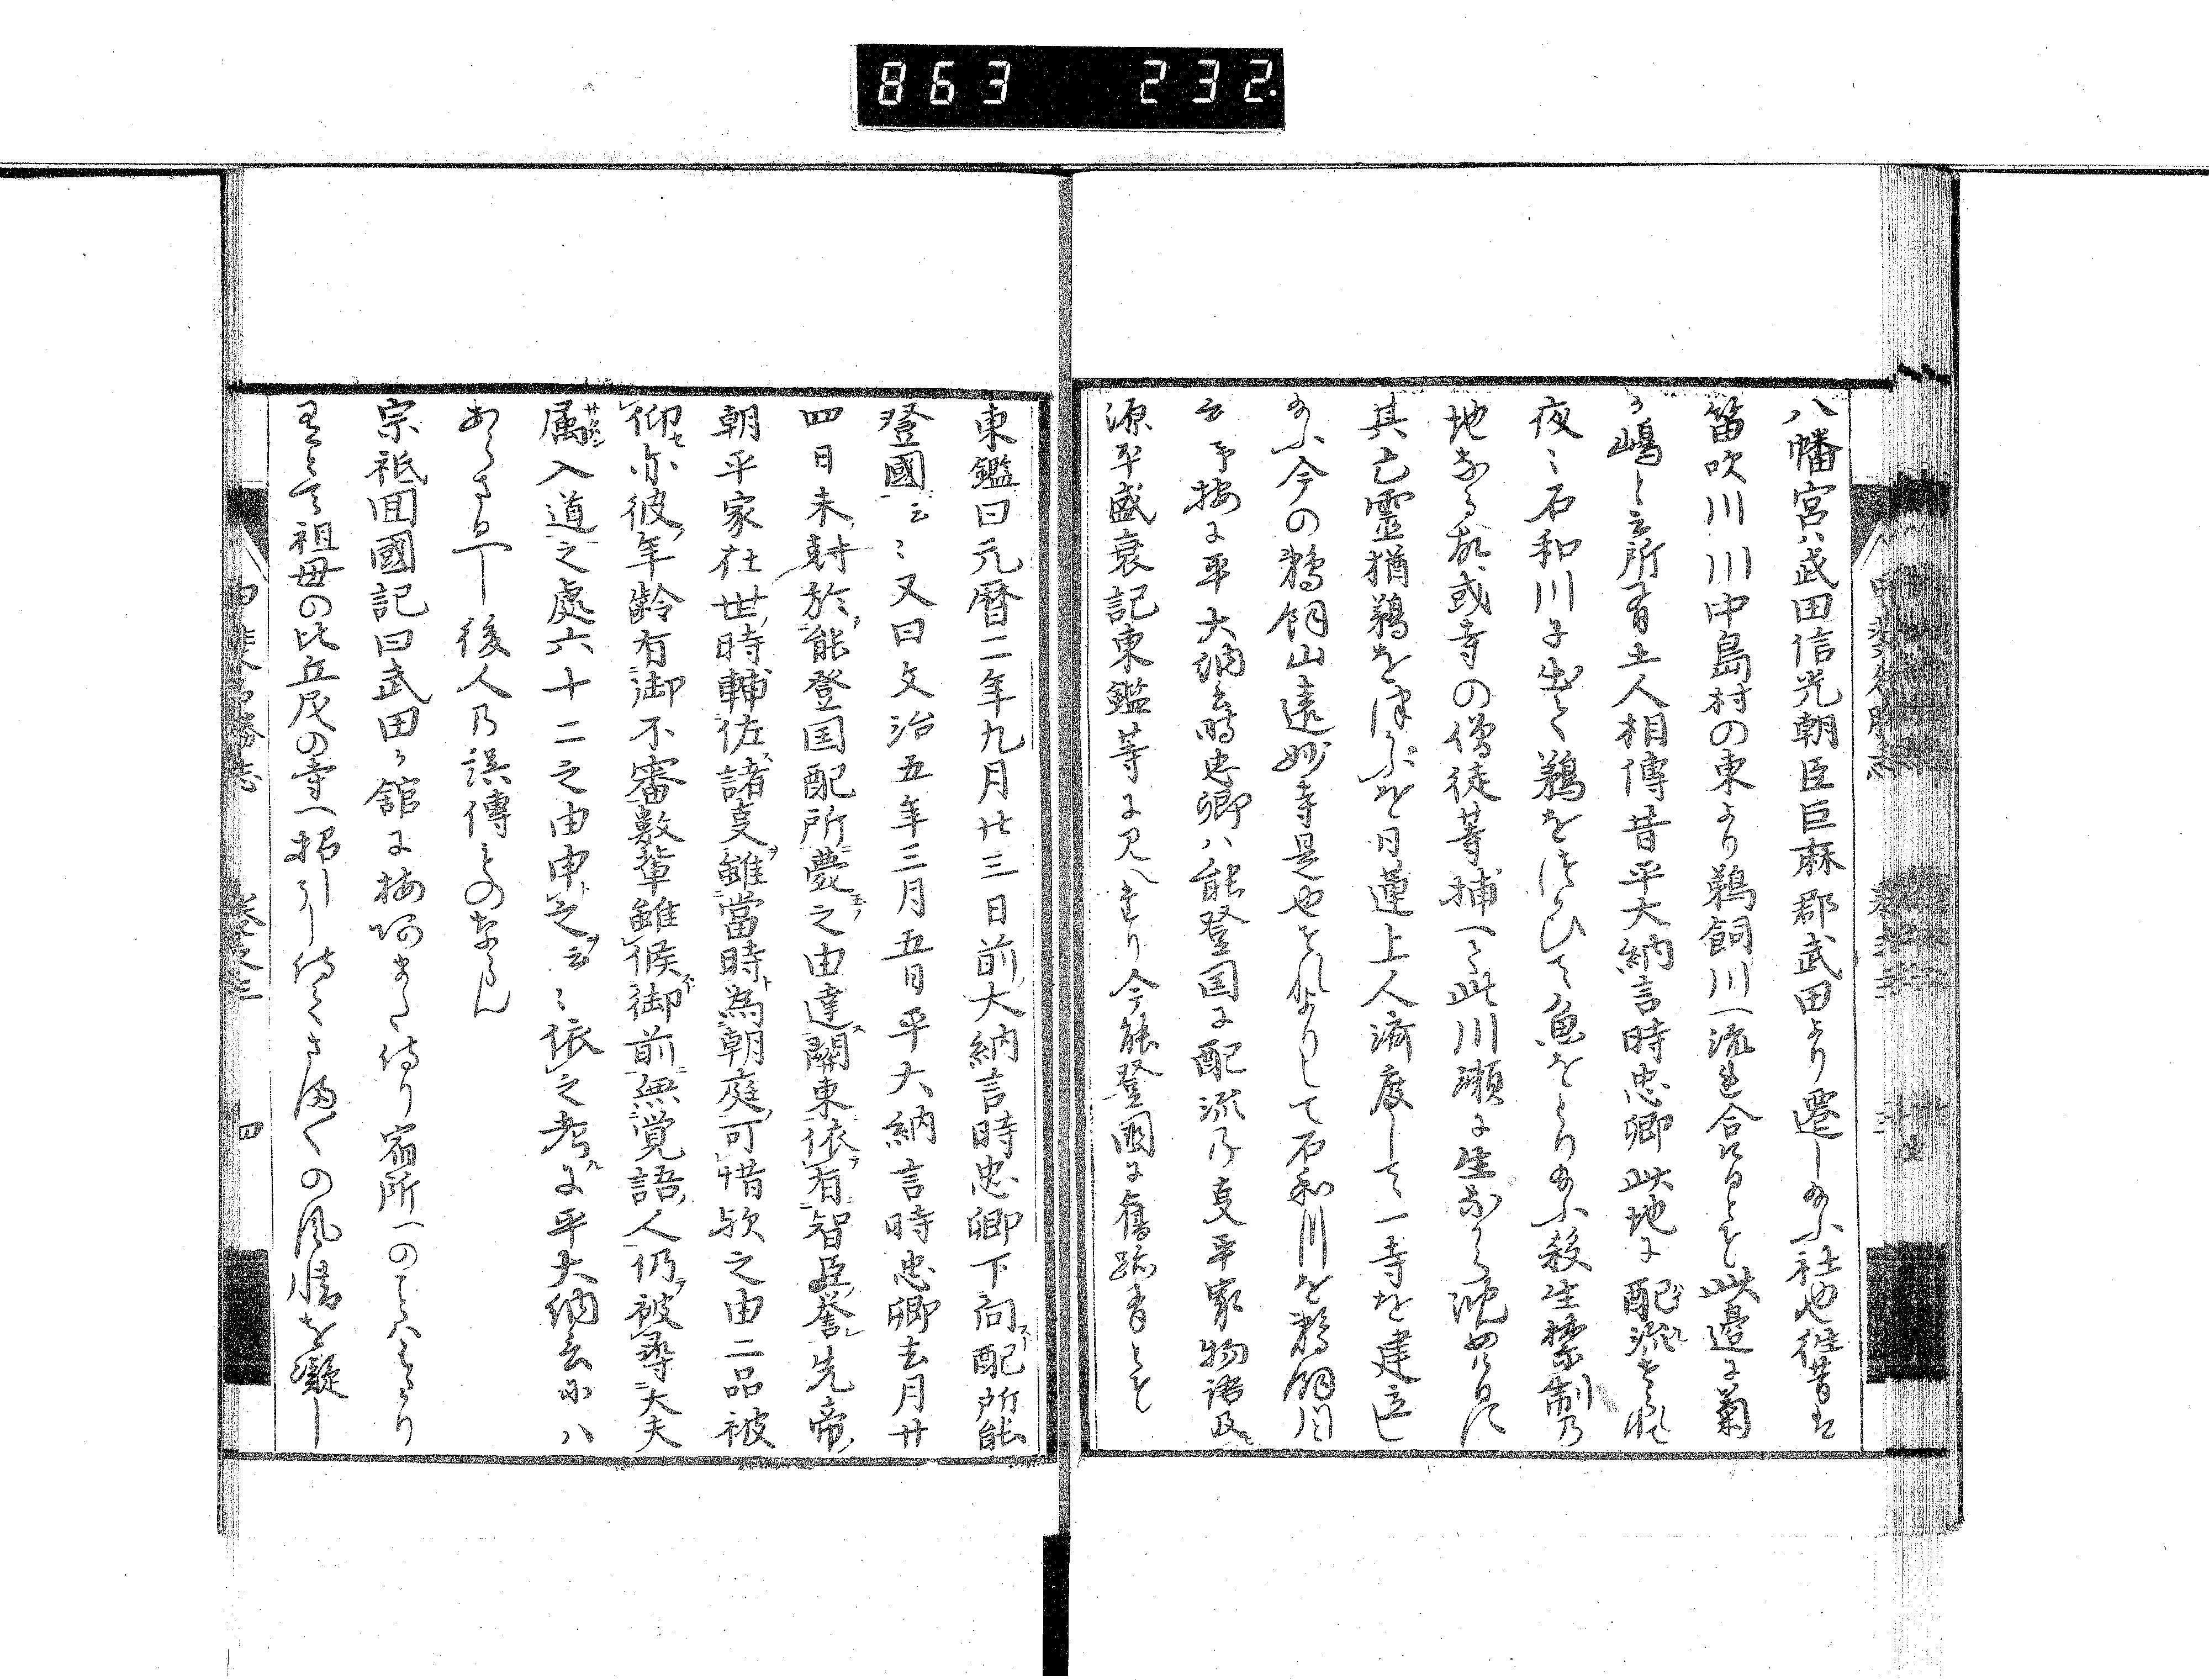 863 232.
八幡宮ハ武田信光朝臣巨麻郡武田より遷し給ふ社也往昔は
笛吹川川中島村の東より鵜飼川へ流れ合けるとそ此邊に菊
か嶋と云所有土人相傳昔平大納言時忠卿此地に配流せられ
夜〻石和川に出て鵜をつかひて魚をとり給ふ殺生禁制乃
地なる故或寺の僧徒等捕へて此川瀬に生なから沈めけるに
其亡靈猶鵜をつかふを日蓮上人済度して一寺を建立し
給ふ今の鵜飼山遠妙寺是也それよりして石和川を鵜飼川
云予按に平大納言時忠卿ハ能登国に配流乃㕝平家物語及
源平盛衰記東鑑等に見へたり今能登國に舊跡有とそ
東鑑曰元暦二年九月廿三日前大納言時忠卿下向配所能
登國云〻又曰文治五年三月五日平大納言時忠卿去月廿
四日未尅於能登国配所薨之由達關東依有智臣誉先帝
朝平家在世時輔佐諸㕝雖當時為朝庭可惜欤之由二品被
仰亦彼年齢有御不審數輩雖候御前無覚語人仍被尋大夫
属入道之處六十二之由申之云〻依之考に平大納言にハ
あらさるへし後人乃誤傳ものならん
宗祇囬國記曰武田か舘に按 侍り宿所への
 とて祖母の比丘尼の寺へ招引し侍てさま〱の風情を凝し
甲斐名勝志 巻之三 四